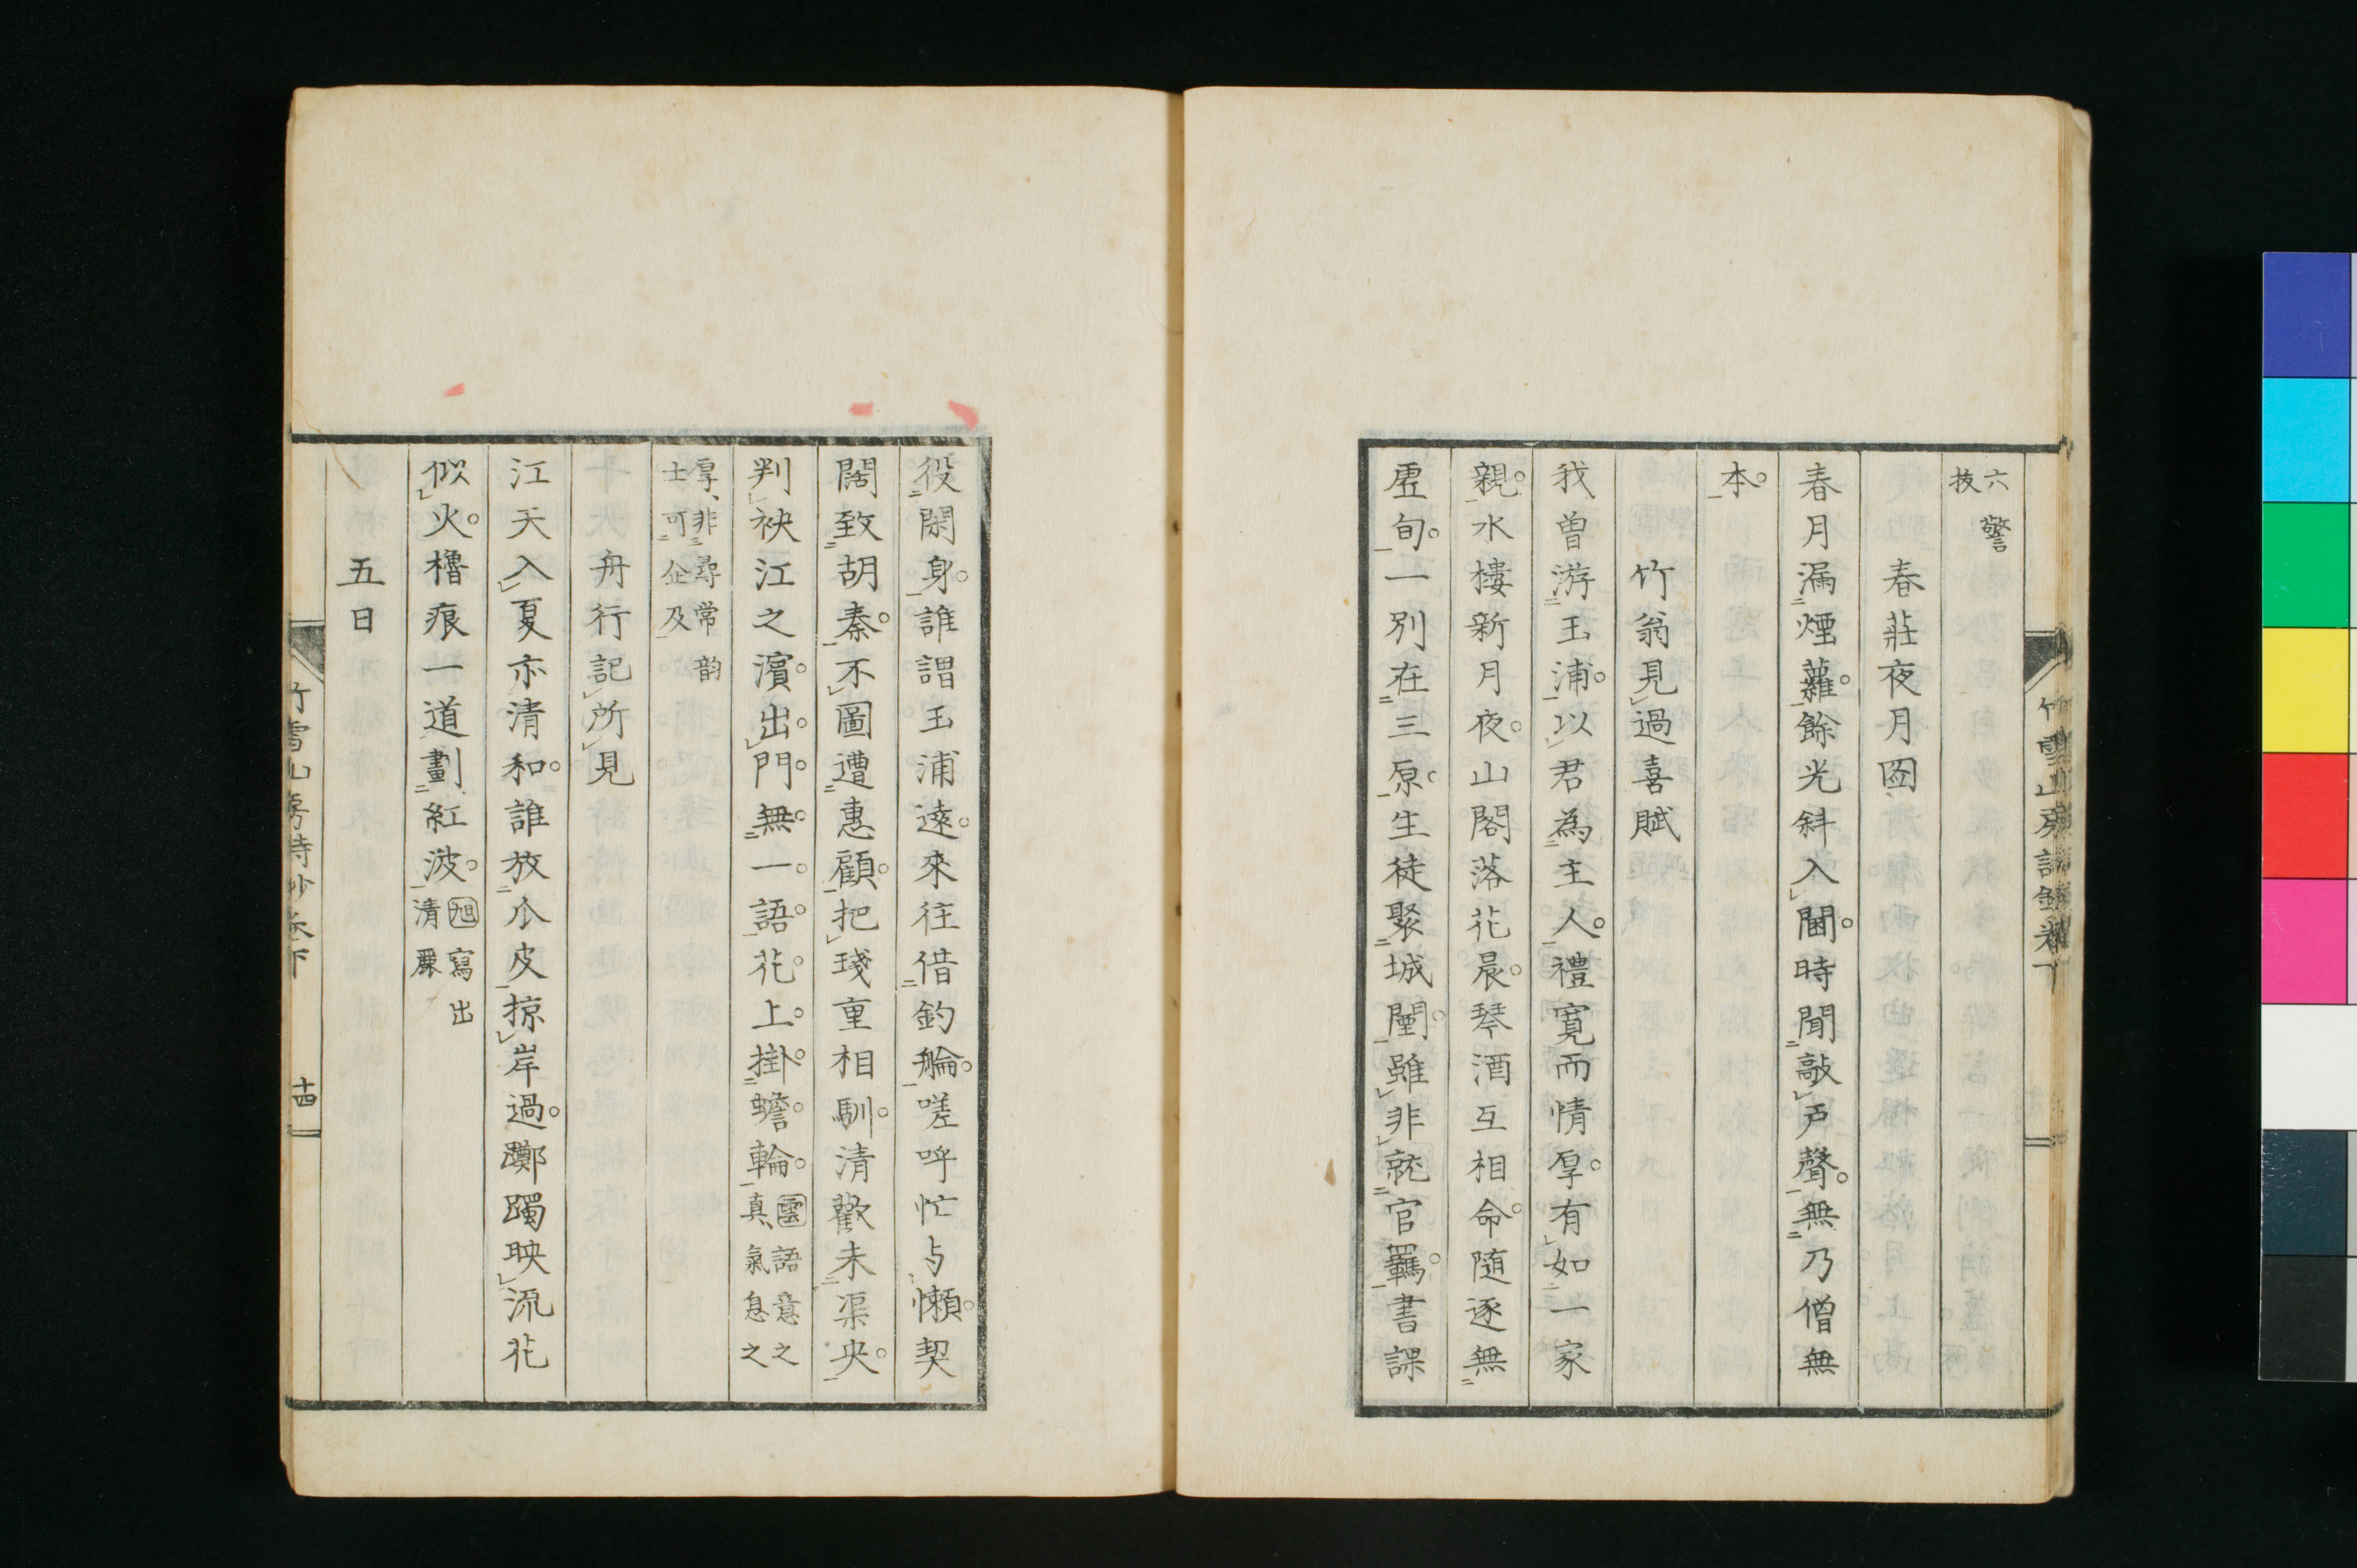 六警
技
春莊夜月図
春月漏煙蘿餘光斜入闥時聞敲戸聲無乃僧無
本
竹翁見過喜賦
我曽游玉浦以君為主人禮寛而情厚有如一家
親水樓新月夜山閣落花晨琴酒互相命隨逐無
虚旬一別在三原生徒聚城闉雖非就官羈書課
竹雪山房詩鈔卷下
役閑身誰謂玉浦遠來往借釣舲嗟呼忙与懶契
闊致胡秦不圖遭惠顧把琖重相馴清歡未渠央
判袂江之濵出門無一語花上掛蟾輪雲語意之
真氣息之
厚非尋常韵
士可企及
舟行記所見
江天入夏亦清和誰放爪皮掠岸過躑躅映流花
似火櫓痕一道劃紅波旭寫出
清麗
五日
竹雪山房詩鈔卷下
十四